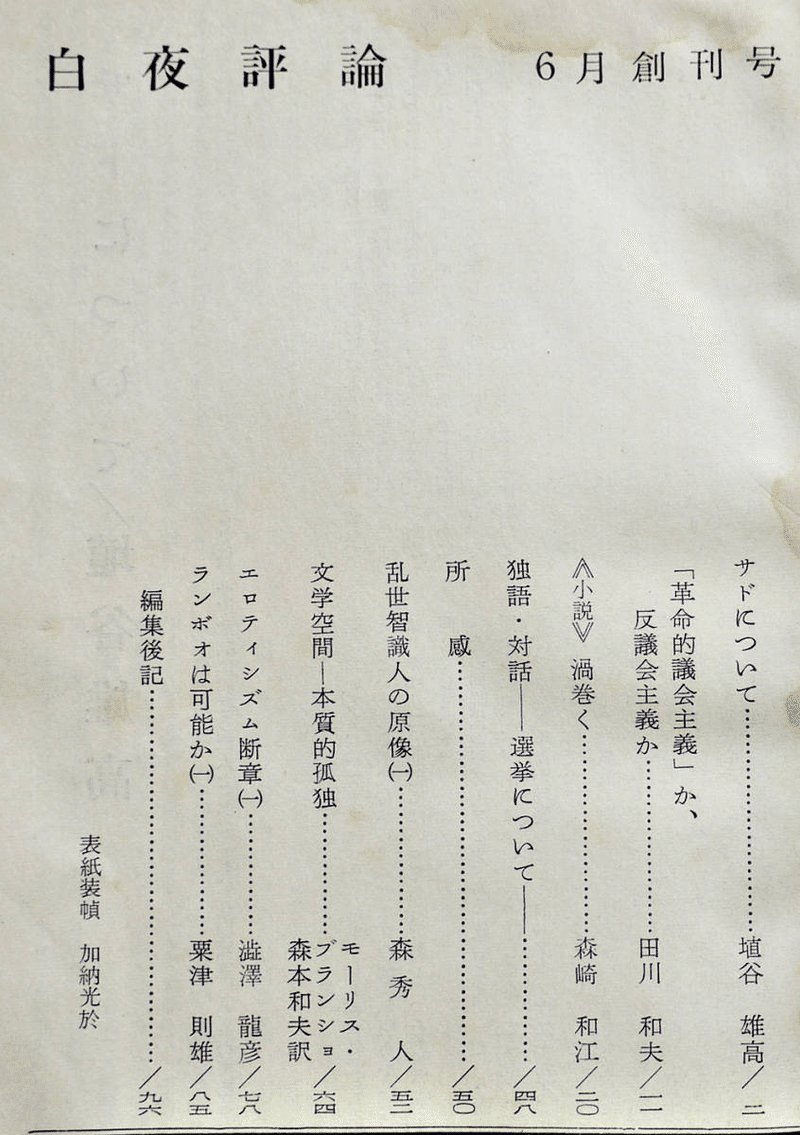 白夜評論　6月創刊号
サドについて……………………埴谷　雄高／二
「革命的議会主義」か、
反議会主義か………………田川　和夫／一一
≪小説≫　渦巻く…………………森崎　和江／二〇
独語・対話――選挙について――……………／四八
所　感……………………………………／五〇
乱世智識人の原像㈠………………森　秀　人／五二
文学空間―本質的孤独……………モーリス・ブランショ
森本和夫訳／六四
エロティシズム断章㈠……………澁澤　龍彦／七八
ランボオは可能か㈠………………粟津　則雄／八五
編集後記…………………………………／九六
表紙装幀　加納光於